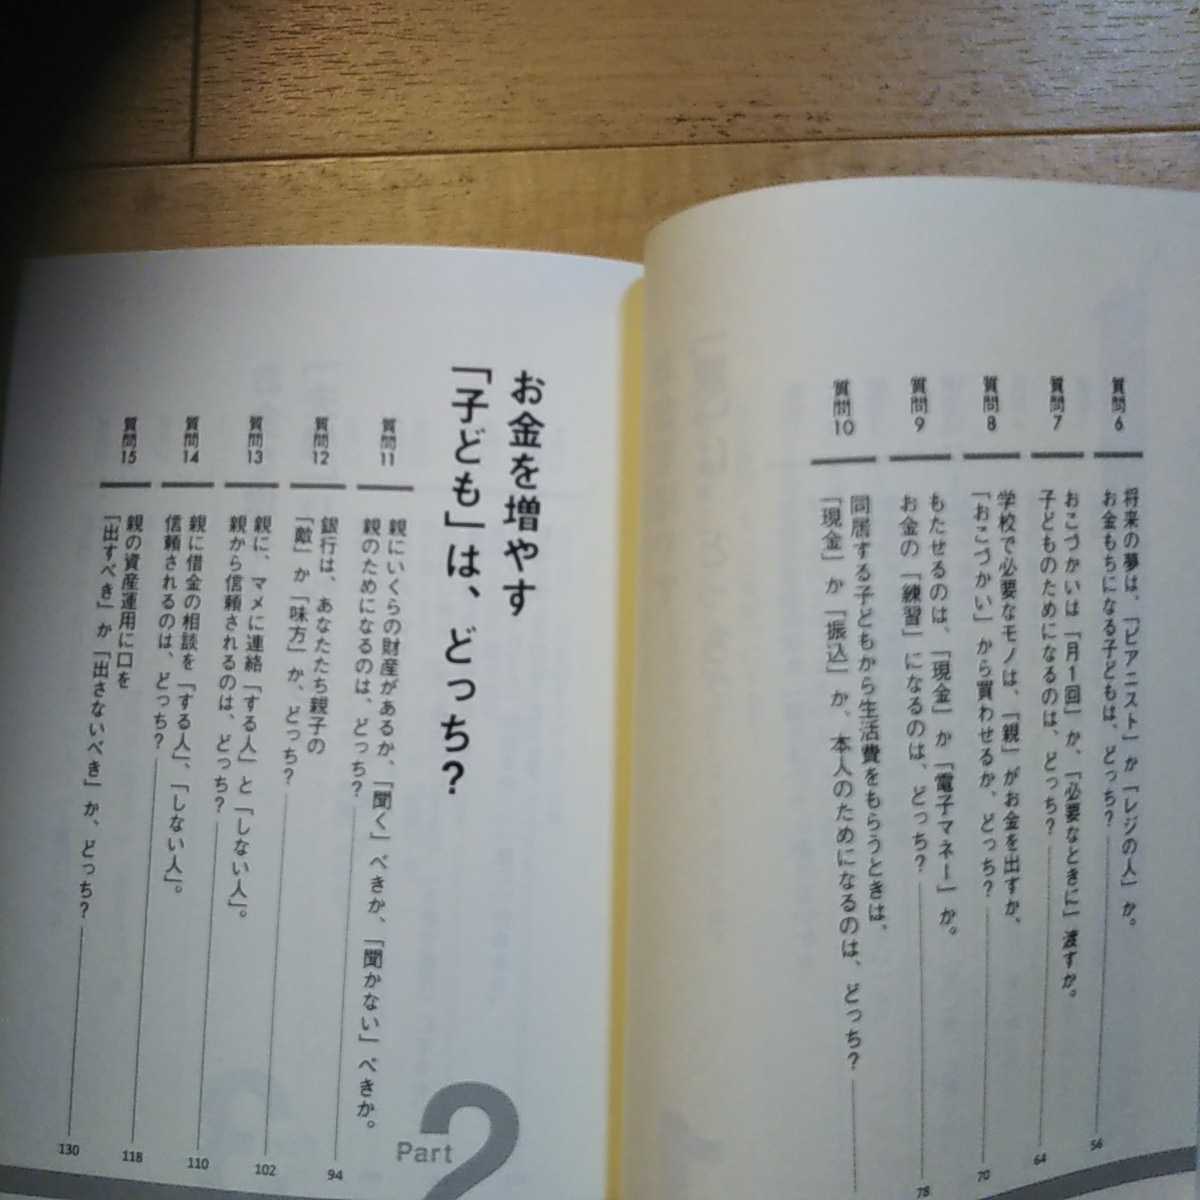 質問6
将来の夢は、「ピアニスト」か「レジの人」か。
お金もちになる子どもは、どっち？
56
質問7
おこづかいは「月1回」か、「必要なときに」渡すか。
子どものためになるのは、どっち？
64
質問8
学校で必要なモノは、「親」がお金を出すか、
「おこづかい」から買わせるか、どっち？
70
質問9
もたせるのは、「現金」か「電子マネー」か。
お金の「練習」になるのは、どっち？
78
質問10
同居する子どもから生活費をもらうときは、
「現金」か「振込」か、本人のためになるのは、どっち？
Part 2
お金を増やす
「子ども」は、どっち？
質問11
親にいくらの財産があるか、「聞く」べきか、「聞かない」べきか。
親のためになるのは、どっち？
94
質問12
銀行は、あなたたち親子の
「敵」か「味方」か、どっち？
102
質問13
親に、マメに連絡「する人」と「しない人」。
親から信頼されるのは、どっち？
110
質問14
親に借金の相談を「する人」、「しない人」。
信頼されるのは、どっち？
118
質問15
親の資産運用に口を
「出すべき」か「出さないべき」か、どっち？
130